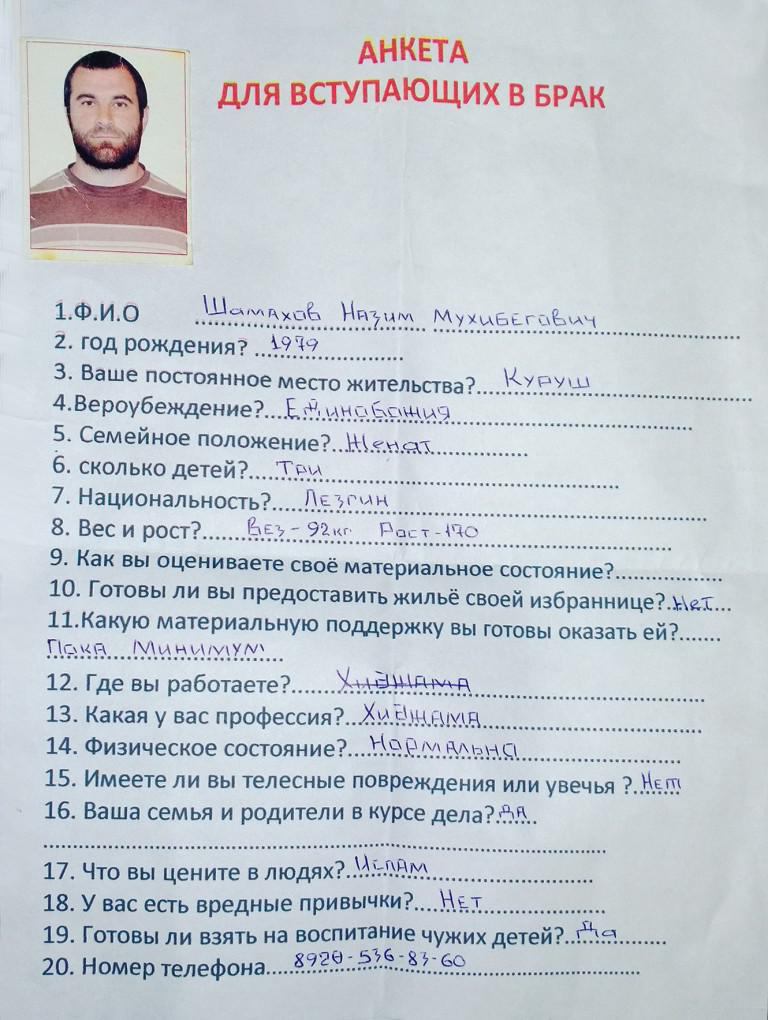 АНКЕТА
ДЛЯ ВСТУПАЮЩИХ В БРАК
1.Ф.И.О Шамахов Назим Мухибегович
2. год рождения? 1979
3. Ваше постоянное место жительства? Куруш
4.Вероубеждение? Единабажия
5. Семейное положение? Женат
6. сколько детей? Три
7. Национальность? Лезгин
8. Вес и рост? Вез-92кг. Раст-170
9. Как вы оцениваете своё материальное состояние?
10. Готовы ли вы предоставить жильё своей избраннице? Нет
11.Какую материальную поддержку вы готовы оказать ей?
Пока Минимум
12. Где вы работаете? Хиджама
13. Какая у вас профессия? Хиджама
14. Физическое состояние? Нармальна
15. Имеете ли вы телесные повреждения или увечья ? Нет
16. Ваша семья и родители в курсе дела? Да
17. Что вы цените в людях? Ислам
18. У вас есть вредные привычки? Нет
19. Готовы ли взять на воспитание чужих детей? Да
20. Номер телефона 8928-536-83-60